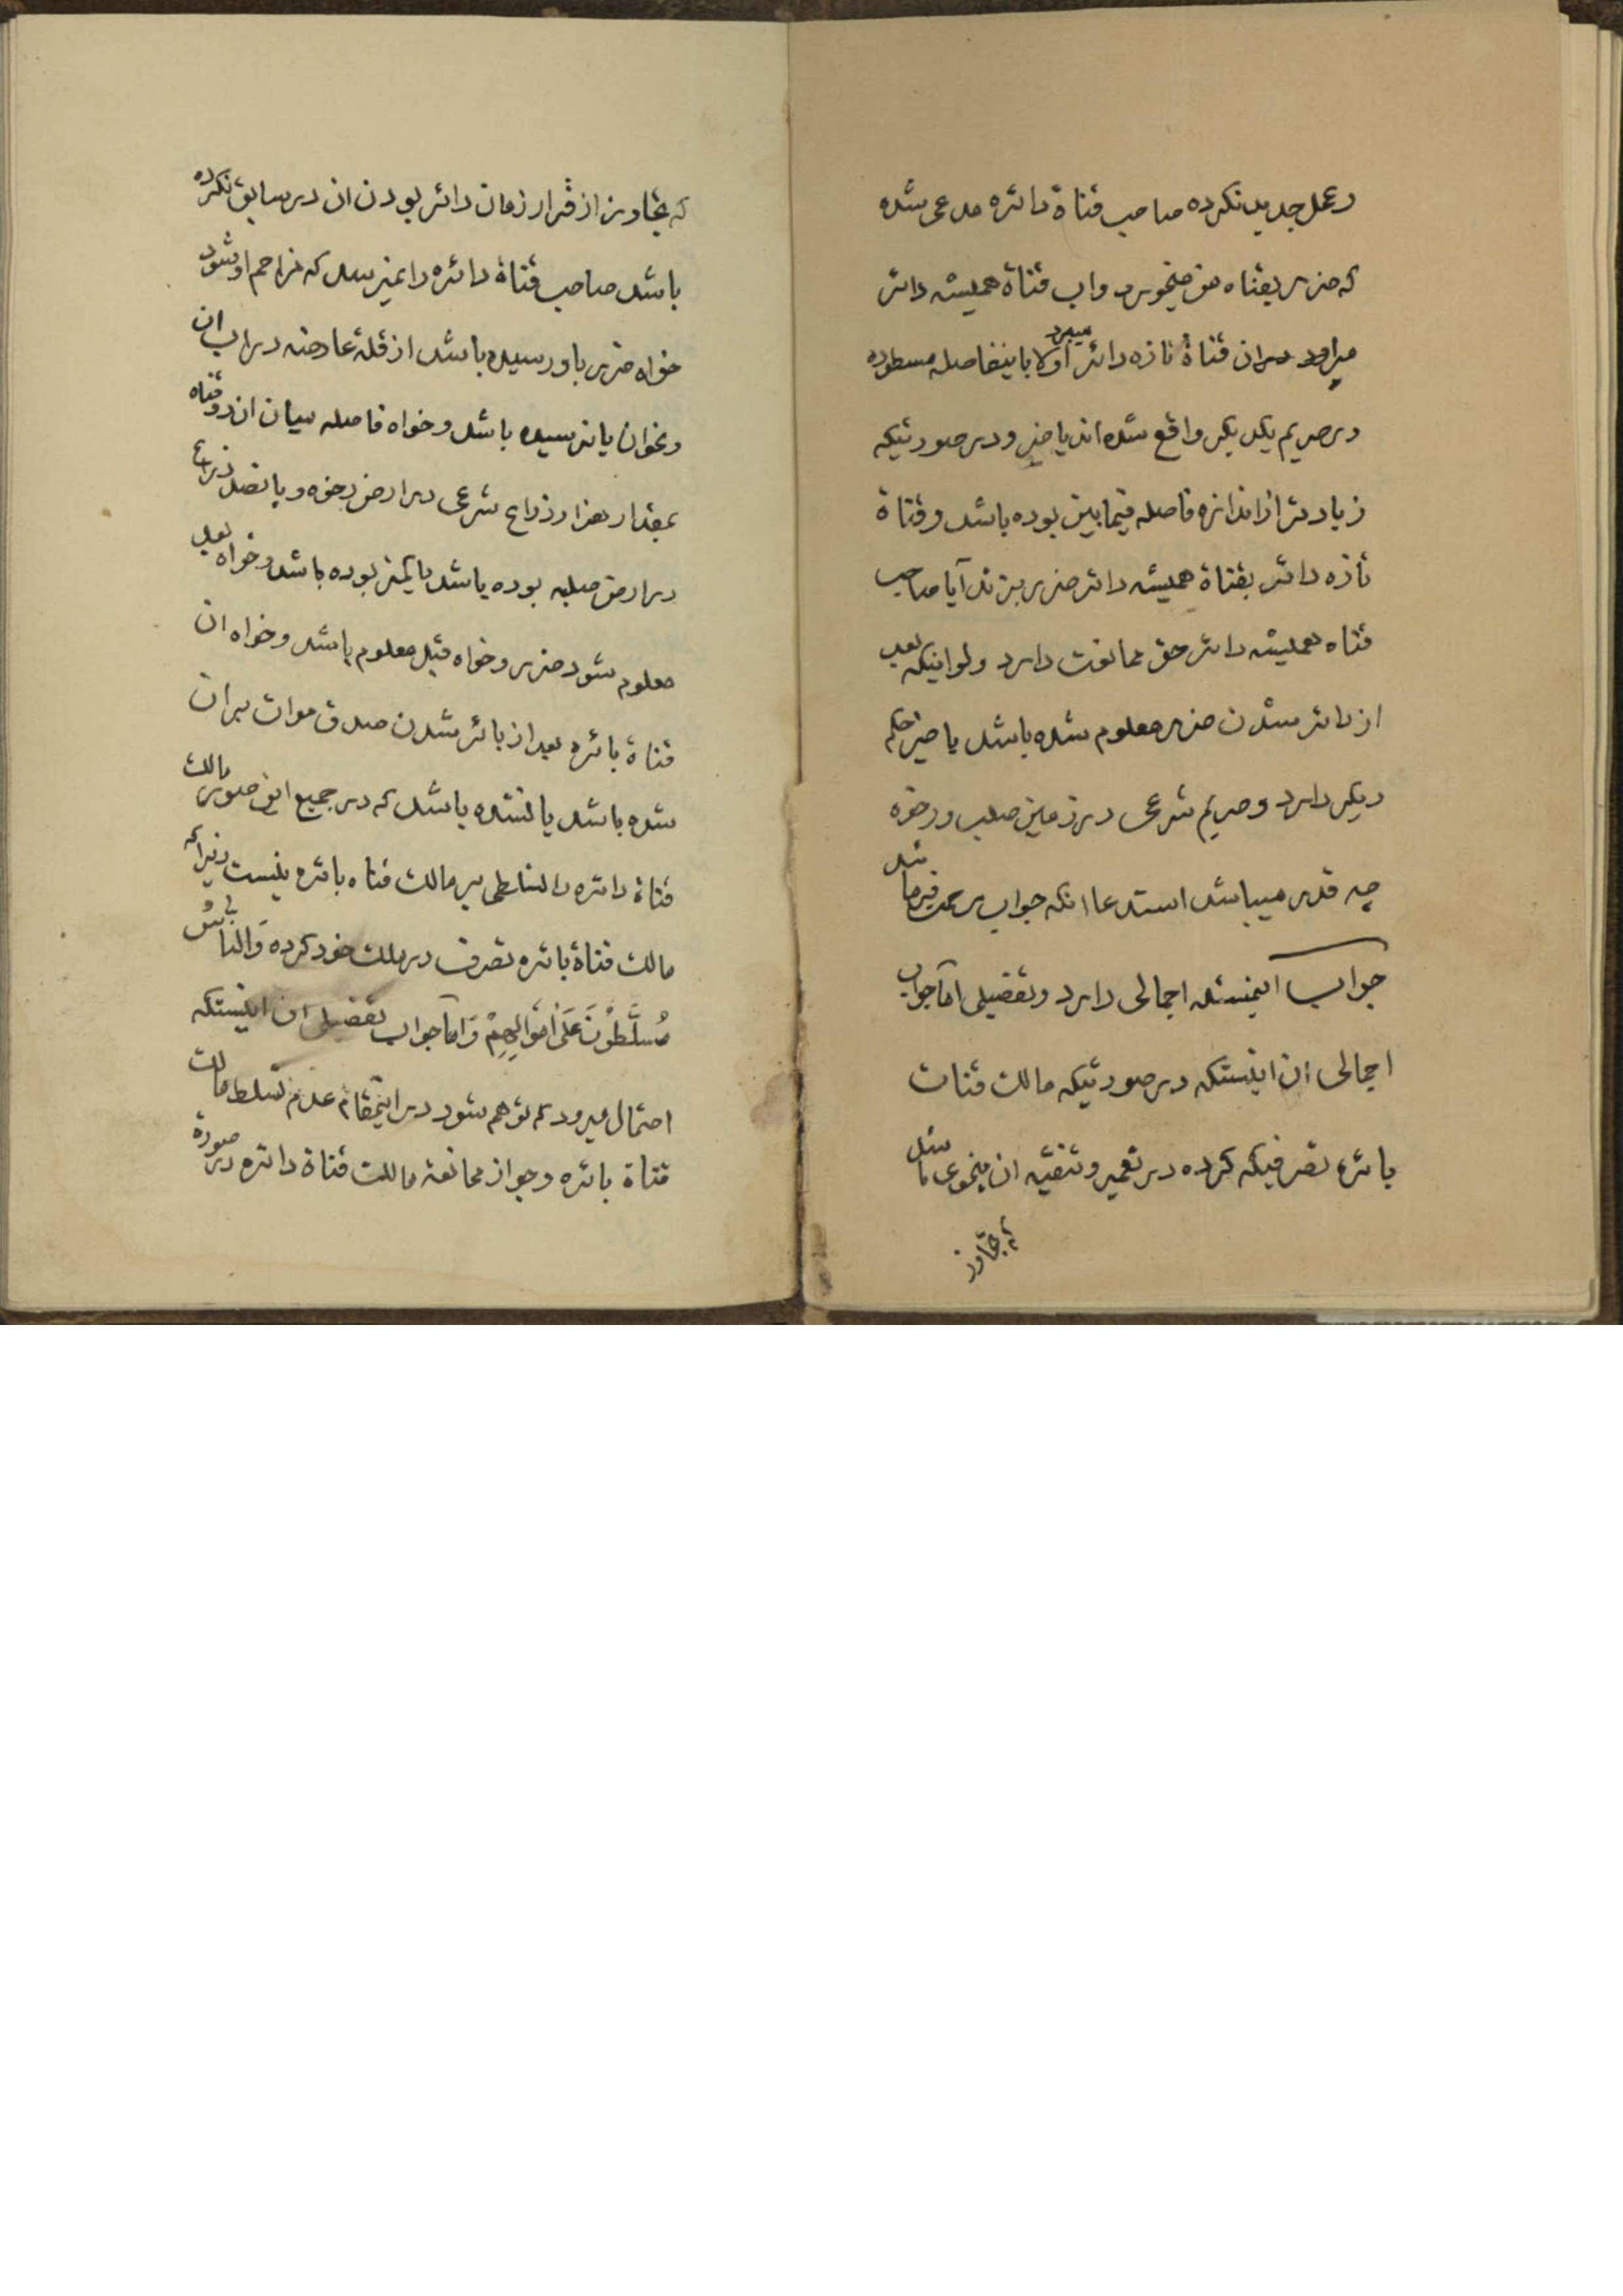 و عمل جدید نکرده صاحب قناة دائره مدعی شده
که ضرر بقناه من میخورد و اب قناة همیشه دائر
میاورد در ان قناة تازه دائر میبرد اولا باینفاصله مسطوره
در حریم یکدیکر واقع شده اند یا خیر و در صورتیکه
زیادتر از اندازه فاصله فیمابین بوده باشد و قناة
تازه دائر بقناة همیشه دائر ضرر بزند آیا صاحب
قناه همیشه دائر حق ممانعت دارد ولو اینکه بعد
از دائر شدن ضرر معلوم شده باشد یا خیر حکم
دیکر دارد و حریم شرعی در زمین صلب و رخوه
چه قدر میباشد استدعا انکه جواب مرحمت فرمائید
جواب اینمسئله اجمالی دارد و تفصیلی امّا جواب
اجمالی ان اینستکه در صورتیکه مالک قنات
بائره تصرفیکه کرده در تعمیر و تنقیه ان بنحوی باشد
که تجاوز
که تجاوز از قرار زمان دائر بودن ان در سابق نکرده
باشد صاحب قناة دائره را نمیرسد که مزاحم او شود
خواه ضرر باو رسیده باشد از قلة عارضه در اب ان
و نحو ان یا نرسیده باشد و خواه فاصله میان ان دو قناه
بمقدار هزار ذراع شرعی در ارض رخوه و پانصد ذراع
در ارض صلبه بوده باشد یا کمتر بوده باشد و خواه بعد
معلوم شود ضرر و خواه قبل معلوم باشد و خواه ان
قناة بائره بعد از بائر شدن صدق موات بر ان
شده باشد یا نشده باشد که در جمیع این صور مالک
قناة دائره را تسلطی بر مالک قناه بائره نیست زیرا که
مالک قناة بائره تصرف در ملک خود کرده وَالناسُ
مُسَلَّطُونَ عَلیٰ اَموٰالِهِمْ وَ امّا جواب تفصیلی ان اینستکه
احتمال میرود که توهم شود در اینمقام عدم تسلط مالک
قناة بائره و جواز ممانعة مالک قناة دائره در صورة